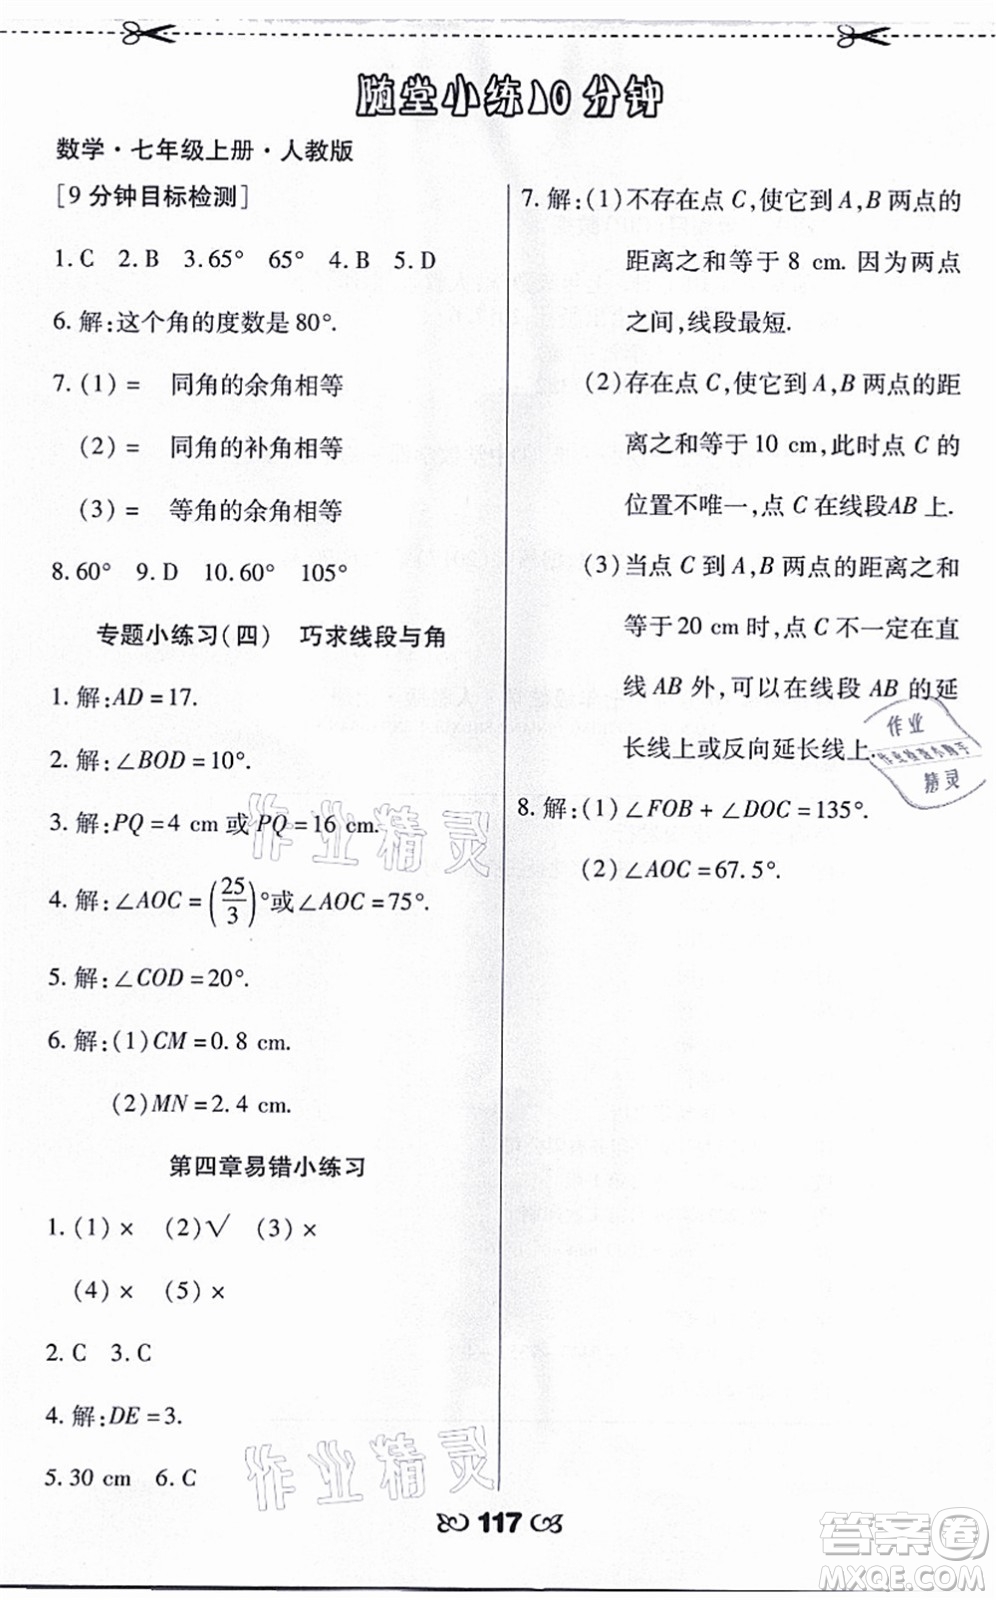 随堂小练10分钟
数学·七年级上册·人教版
[9分钟目标检测]
1.C 2.B 3.65° 65° 4.B 5.D
6.解:这个角的度数是80°.
7.(1)= 同角的余角相等
(2)= 同角的补角相等
(3)= 等角的余角相等
8.60° 9.D 10.60° 105°
专题小练习(四) 巧求线段与角
1.解:AD=17.
2.解:∠BOD=10°.
3.解:PQ=4 cm或PQ=16 cm.
4.解:∠AOC=(25/3)°或∠AOC=75°.
5.解:∠COD=20°.
6.解:(1)CM=0.8 cm.
(2)MN=2.4 cm.
第四章易错小练习
1.(1)× (2)√ (3)×
(4)× (5)×
2.C 3.C
4.解:DE=3.
5.30 cm 6.C
7.解:(1)不存在点C,使它到A,B两点的
距离之和等于8 cm.因为两点
之间,线段最短.
(2)存在点C,使它到A,B两点的距
离之和等于10 cm,此时点C的
位置不唯一,点C在线段AB上.
(3)当点C到A,B两点的距离之和
等于20 cm时,点C不一定在直
线AB外,可以在线段AB的延
长线上或反向延长线上.
8.解:(1)∠FOB+∠DOC=135°.
(2)∠AOC=67.5°.
117
作业精灵
作业精灵
作业
作业检查小助手
精灵
答案圈
MXQE.COM